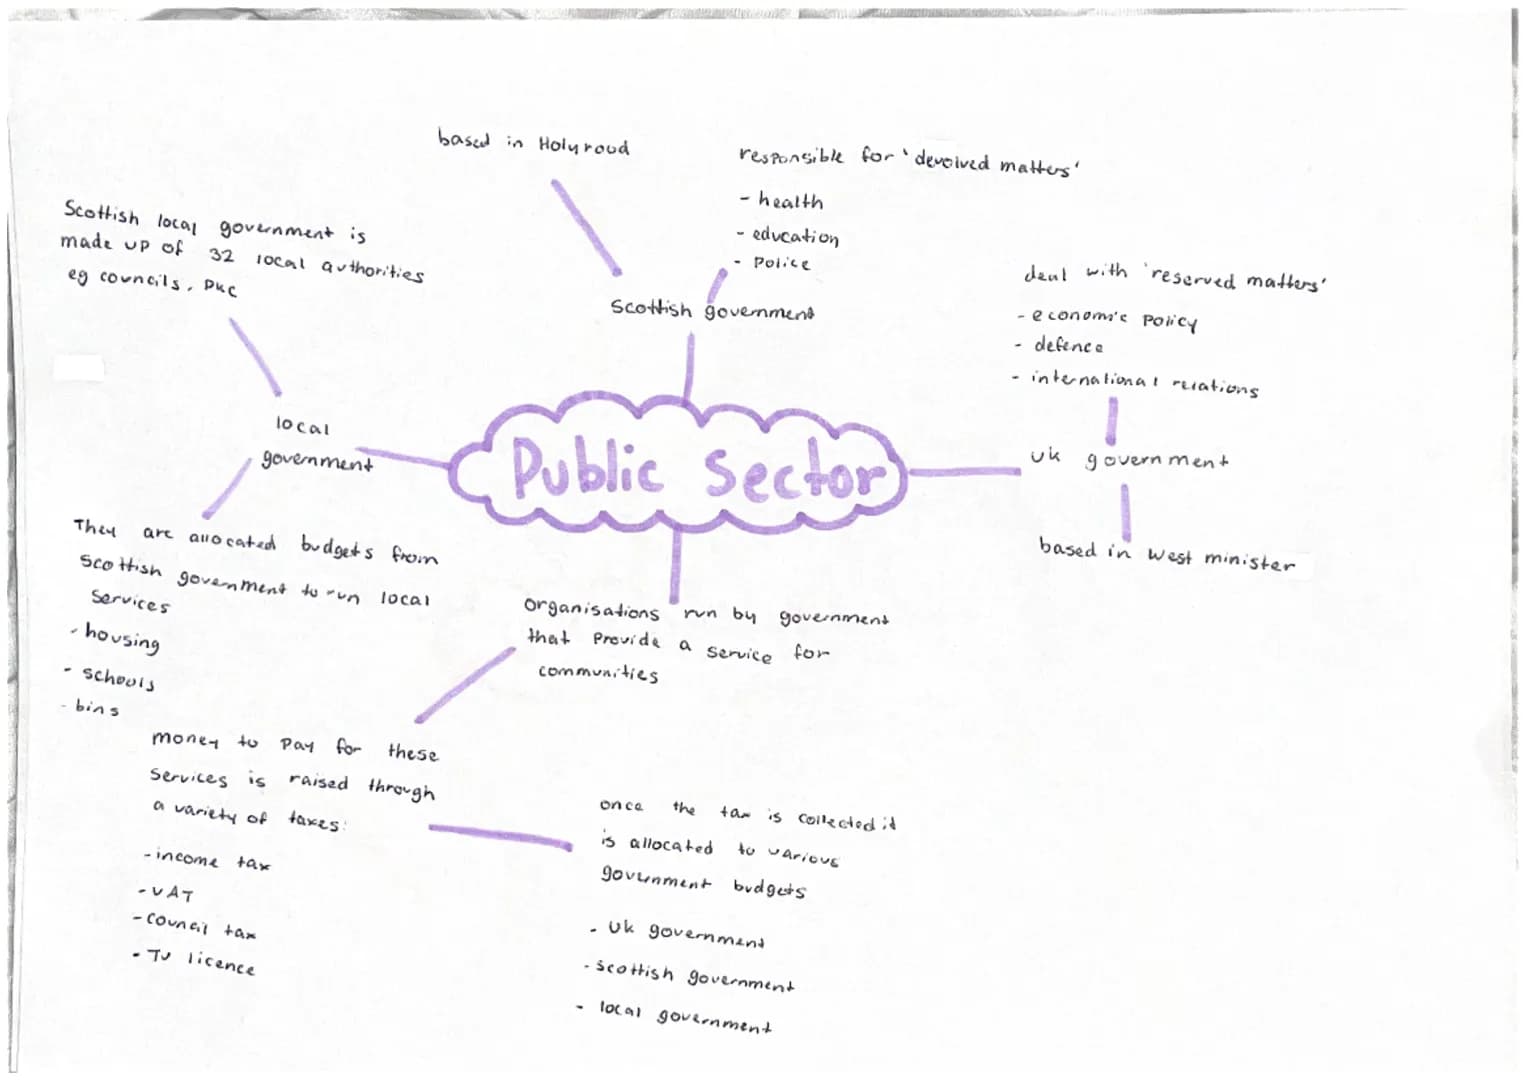 based in Holyrood
responsible for 'devolved matters'
- health
- education
- Police
Scottish government
Scottish local government is
made up of 32 local authorities
eg councils, PKC
deal with 'reserved matters'
- economic policy
- defence
- international relations
local
government
Public Sector
uk government
based in west minister
They are allocated budgets from
Scottish government to run local
services
- housing
- schools
- bins
organisations run by government
that provide a service for
communities
money to pay for these
services is raised through
a variety of taxes:
- income tax
- VAT
- council tax
- TV licence
once the tax is collected it
is allocated to various
government budgets
- uk government
- scottish government
- local government